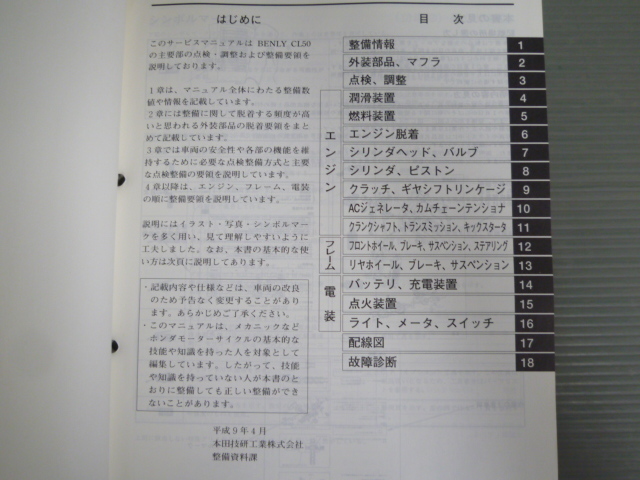 はじめに
このサービスマニュアルは BENLY CL50
の主要部の点検・調整および整備要領を
説明しております。
1章は、マニュアル全体にわたる整備数
値や情報を記載しています。
2章には整備に関して脱着する頻度が高
いと思われる外装部品の脱着要領をまと
めて記載しています。
3章では車両の安全性や各部の機能を維
持するために必要な点検整備方式と主要
な点検整備の要領を説明しています。
4章以降は、エンジン、フレーム、電装
の順に整備要領を説明しています。
説明にはイラスト・写真・シンボルマー
クを多く用い、見て理解しやすいように
工夫しました。なお、本書の基本的な使
い方は次頁に説明してあります。
・記載内容や仕様などは、車両の改良
のため予告なく変更することがあり
ます。あらかじめご了承ください。
・このマニュアルは、メカニックなど
ホンダモーターサイクルの基本的な
技能や知識を持った人を対象として
編集しています。したがって、技能
や知識を持っていない人が本書のと
おりに整備しても正しい整備ができ
ないことがあります。
平成9年4月
本田技研工業株式会社
整備資料課
目 次
整備情報 1
外装部品、マフラ 2
点検、調整 3
エンジン
潤滑装置 4
燃料装置 5
エンジン脱着 6
シリンダヘッド、バルブ 7
シリンダ、ピストン 8
クラッチ、ギヤシフトリンケージ 9
ACジェネレータ、カムチェーンテンショナ 10
クランクシャフト、トランスミッション、キックスタータ 11
フレーム
フロントホイール、ブレーキ、サスペンション、ステアリング 12
リヤホイール、ブレーキ、サスペンション 13
電装
バッテリ、充電装置 14
点火装置 15
ライト、メータ、スイッチ 16
配線図 17
故障診断 18